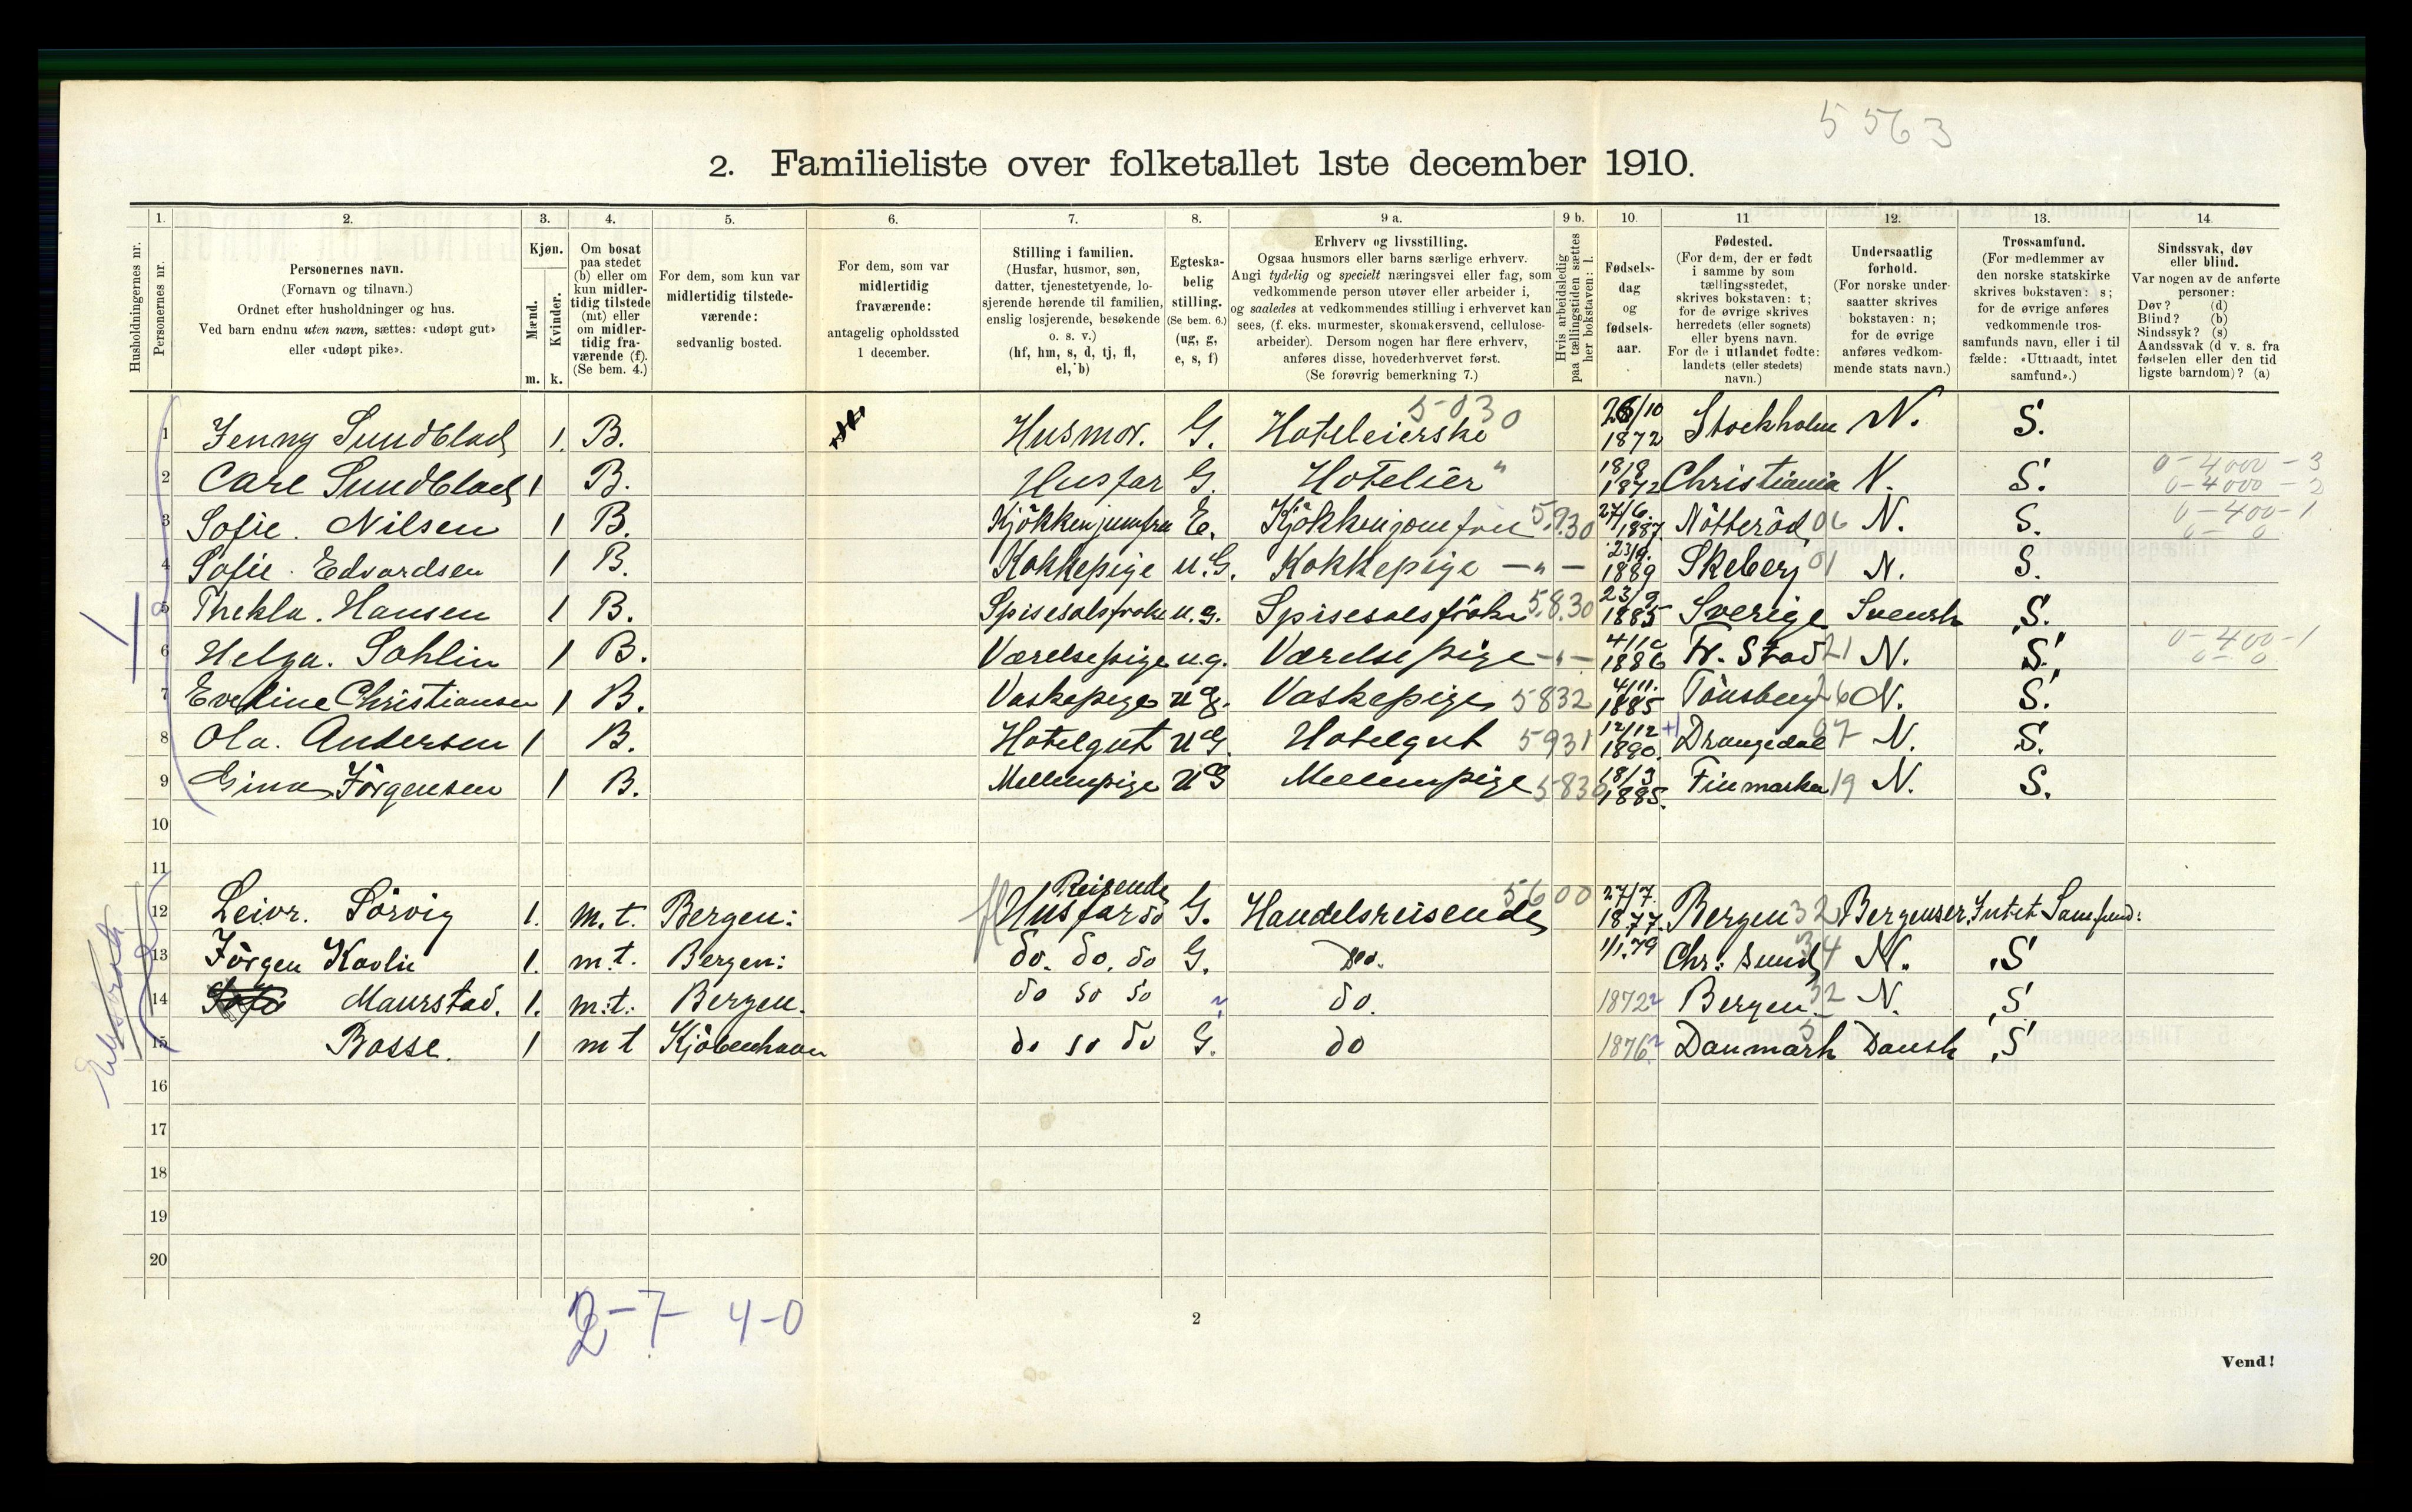 5563
2. Familieliste over folketallet 1ste december 1910.
1. 2. 3. 4. 5. 6. 7. 8. 9 a. 9 b. 10. 11 12. 13. 14.
Husholdningernes nr.
Personernes nr.
Personernes navn.
(Fornavn og tilnavn.)
Ordnet efter husholdninger og hus.
Ved barn endnu uten navn, sættes: «udøpt gut»
eller «udøpt pike».
Kjøn.
Mænd.
Kvinder.
m. k.
Om bosat
paa stedet
(b) eller om
kun midler-
tidig tilstede
(mt) eller
om midler-
tidig fra-
værende (f).
(Se bem. 4.)
For dem, som kun var
midlertidig tilstede-
værende:
sedvanlig bosted.
For dem, som var
midlertidig
fraværende:
antagelig opholdssted
1 december.
Stilling i familien.
(Husfar, husmor, søn,
datter, tjenestetyende, lo-
sjerende hørende til familien,
enslig losjerende, besøkende
o. s. v.)
(hf, hm, s, d, tj, fl,
el, b)
Egteska-
belig
stilling.
(Se bem. 6.)
(ug, g,
e, s, f)
Erhverv og livsstilling.
Ogsaa husmors eller barns særlige erhverv.
Angi tydelig og specielt næringsvei eller fag, som
vedkommende person utøver eller arbeider i,
og saaledes at vedkommendes stilling i erhvervet kan
sees, (f. eks. murmester, skomakersvend, cellulose-
arbeider). Dersom nogen har flere erhverv,
anføres disse, hovederhvervet først.
(Se forøvrig bemerkning 7.)
Hvis arbeidsledig
paa tællingstiden sættes
her bokstaven: l.
Fødsels-
dag
og
fødsels-
aar.
Fødested.
(For dem, der er født
i samme by som
tællingsstedet,
skrives bokstaven: t;
for de øvrige skrives
herredets (eller sognets)
eller byens navn.
For de i utlandet fødte:
landets (eller stedets)
navn.)
Undersaatlig
forhold.
(For norske under-
saatter skrives
bokstaven: n;
for de øvrige
anføres vedkom-
mende stats navn.)
Trossamfund.
(For medlemmer av
den norske statskirke
skrives bokstaven: s;
for de øvrige anføres
vedkommende tros-
samfunds navn, eller i til
fælde: «Uttraadt, intet
samfund».)
Sindssvak, døv
eller blind.
Var nogen av de anførte
personer:
Døv? (d)
Blind? (b)
Sindssyk? (s)
Aandssvak (d v. s. fra
fødselen eller den tid
ligste barndom)? (a)
1 Jenny Sundblad 1. B. Husmor. G. Hoteleierske 5030 26/10 1872 Stockholm N. S.
2 Carl Sundblad 1 B. Husfar G. Hotelier " 18/8 1872 Christiania N. S. 0-4000-3 0-4000-2
3 Sofie. Nilsen 1 B. Kjökkenjumfru E. Kjökkenjomfru 5.830 27/6. 1887. Nötteröd 06 N. S. 0-400-1 0-0
4 Sofie. Edvardsen 1 B. Kokkepige u.G. Kokkepige -"- 23/9. 1889 Skeberg 01 N. S.
5 Thekla. Hansen 1 B. Spisesalsfrøken u.g. Spisesalsfröken 5.830 23/9 1885 Sverige Svensk S.
6 Helga. Sohlin 1 B. Værelsepige u.g. Værelsepige -"- 4/10 1886 Fr. Stad 21 N. S. 0-400-1 0-0
7 Eveline Christiansen 1 B. Vaskepige ug. Vaskepige 5832 4/11. 1885 Tönsberg 26 N. S.
8 Ola. Andersen 1 B. Hotelgut uG. Hotelgut 5931 12/12 1890. +1 Drangedal 07 N. S.
9 Gina Jörgensen 1 B. Mellempige uG Mellempige 5830 18/3 1885. Finmarken 19 N. S.
10
11
12 Leivr. Sörvig 1. m.t. Bergen: fl Reisende Husfar do G. Handelsreisende 5600 27/7. 1877. Bergen 32 Bergenser Intet Samfund:
13 Jörgen Kavlie 1. m.t. Bergen: do. do. do G. Do. 1/1.79 Chr: Sund 34 N. S
14 Maurstad. 1. m.t. Bergen. do do do ~ do. 1872 Bergen. 32 N. S
15 Bosse. 1 mt Kjöbenhavn do do do G. do 1876 Danmark 5 Dansk S
16
17
18
19
20
2-7 4-0
2
Vend!